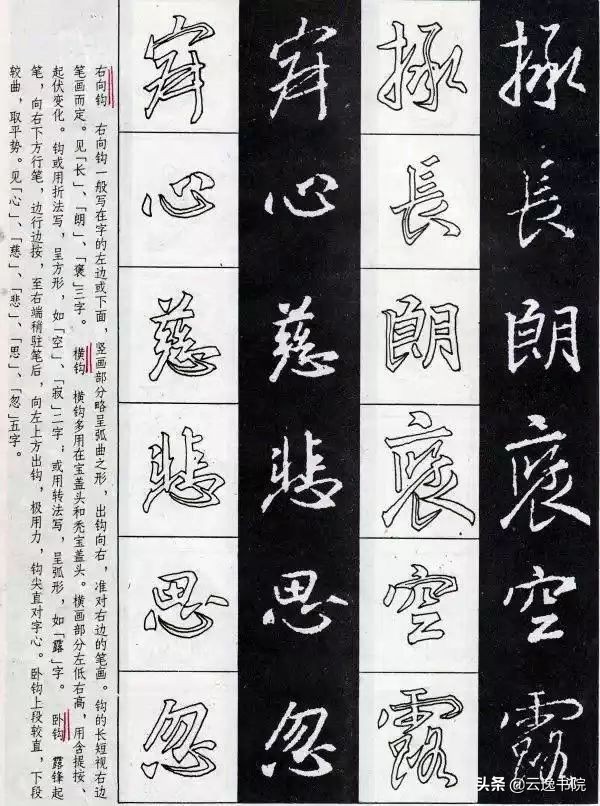 拯長朗褒空露
拯長朗褒空露
寂心慈悲思忽
寂心慈悲思忽
右向钩　右向钩一般写在字的左边或下面，竖画部分略呈弧曲之形，出钩向右，准对右边的笔画。钩的长短视右边
笔画而定。见「长」、「朗」、「褒」三字。　横钩　横钩多用在宝盖头和秃宝盖头。横画部分左低右高，用含提按、
起伏变化。钩或用折法写，呈方形，如「空」、「寂」二字；或用转法写，呈弧形，如「露」字。　卧钩　露锋起
笔，向右下方行笔，边行边按，至右端稍驻笔后，向左上方出钩，极用力，钩尖直对字心。卧钩上段较直，下段
较曲，取平势。见「心」、「慈」、「悲」、「思」、「忽」五字。
头条 @云逸书院